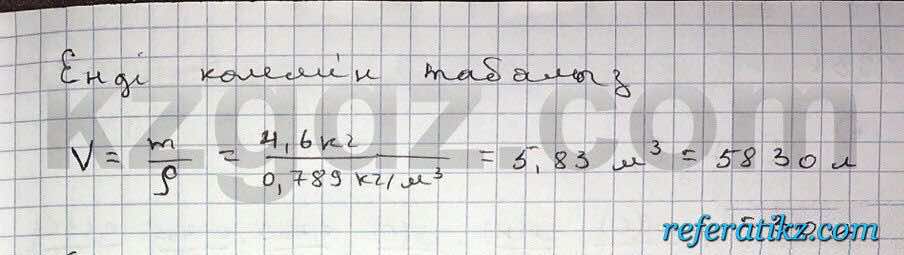 Енді көлемін табамыз
V = m/ρ = 4,6 кг / 0,789 кг/м³ = 5,83 м³ = 5830 л
kzgdz.com
referatikz.com